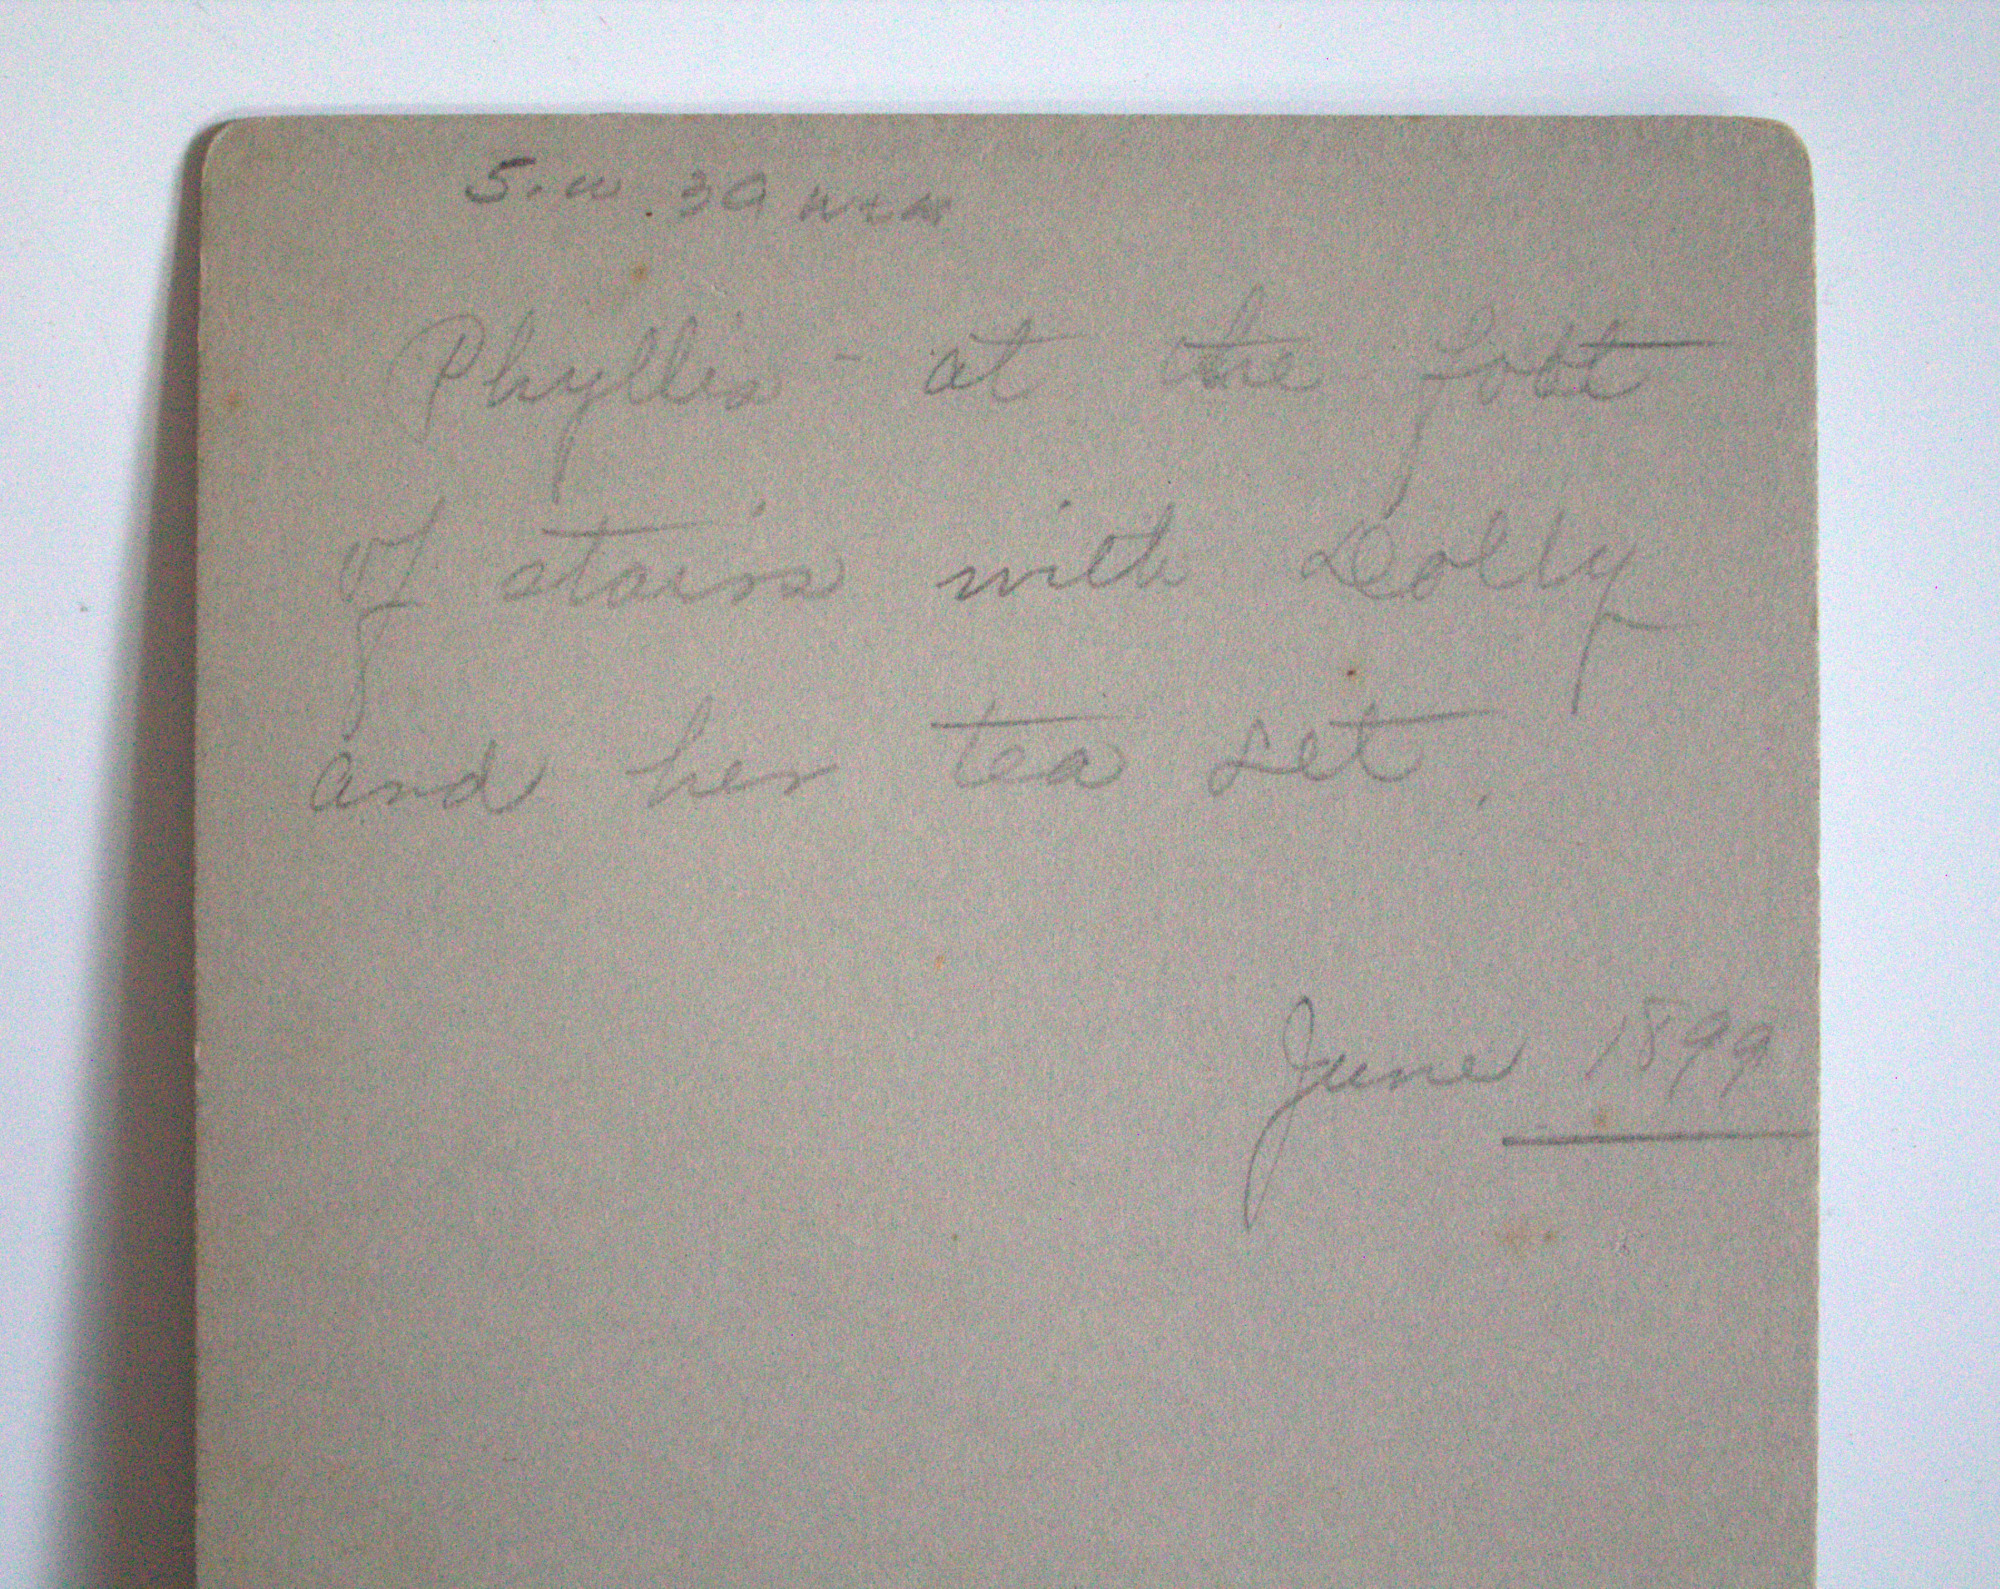 Phyllis - at the foot
of stairs with Dolly
and her tea set.
June 1899